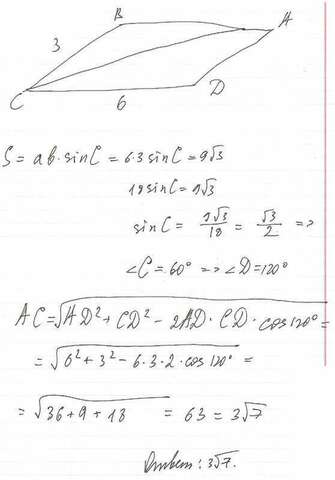 B
A
3
C
6
D
S = ab·sinC = 6·3 sinC = 9√3
18 sinC = 9√3
sinC = 9√3/18 = √3/2 =>
∠C = 60° => ∠D = 120°
AC = √AD² + CD² - 2AD · CD · cos120° =
= √6² + 3² - 6·3·2·cos120° =
= √36 + 9 + 18 = 63 = 3√7
Ответ: 3√7.